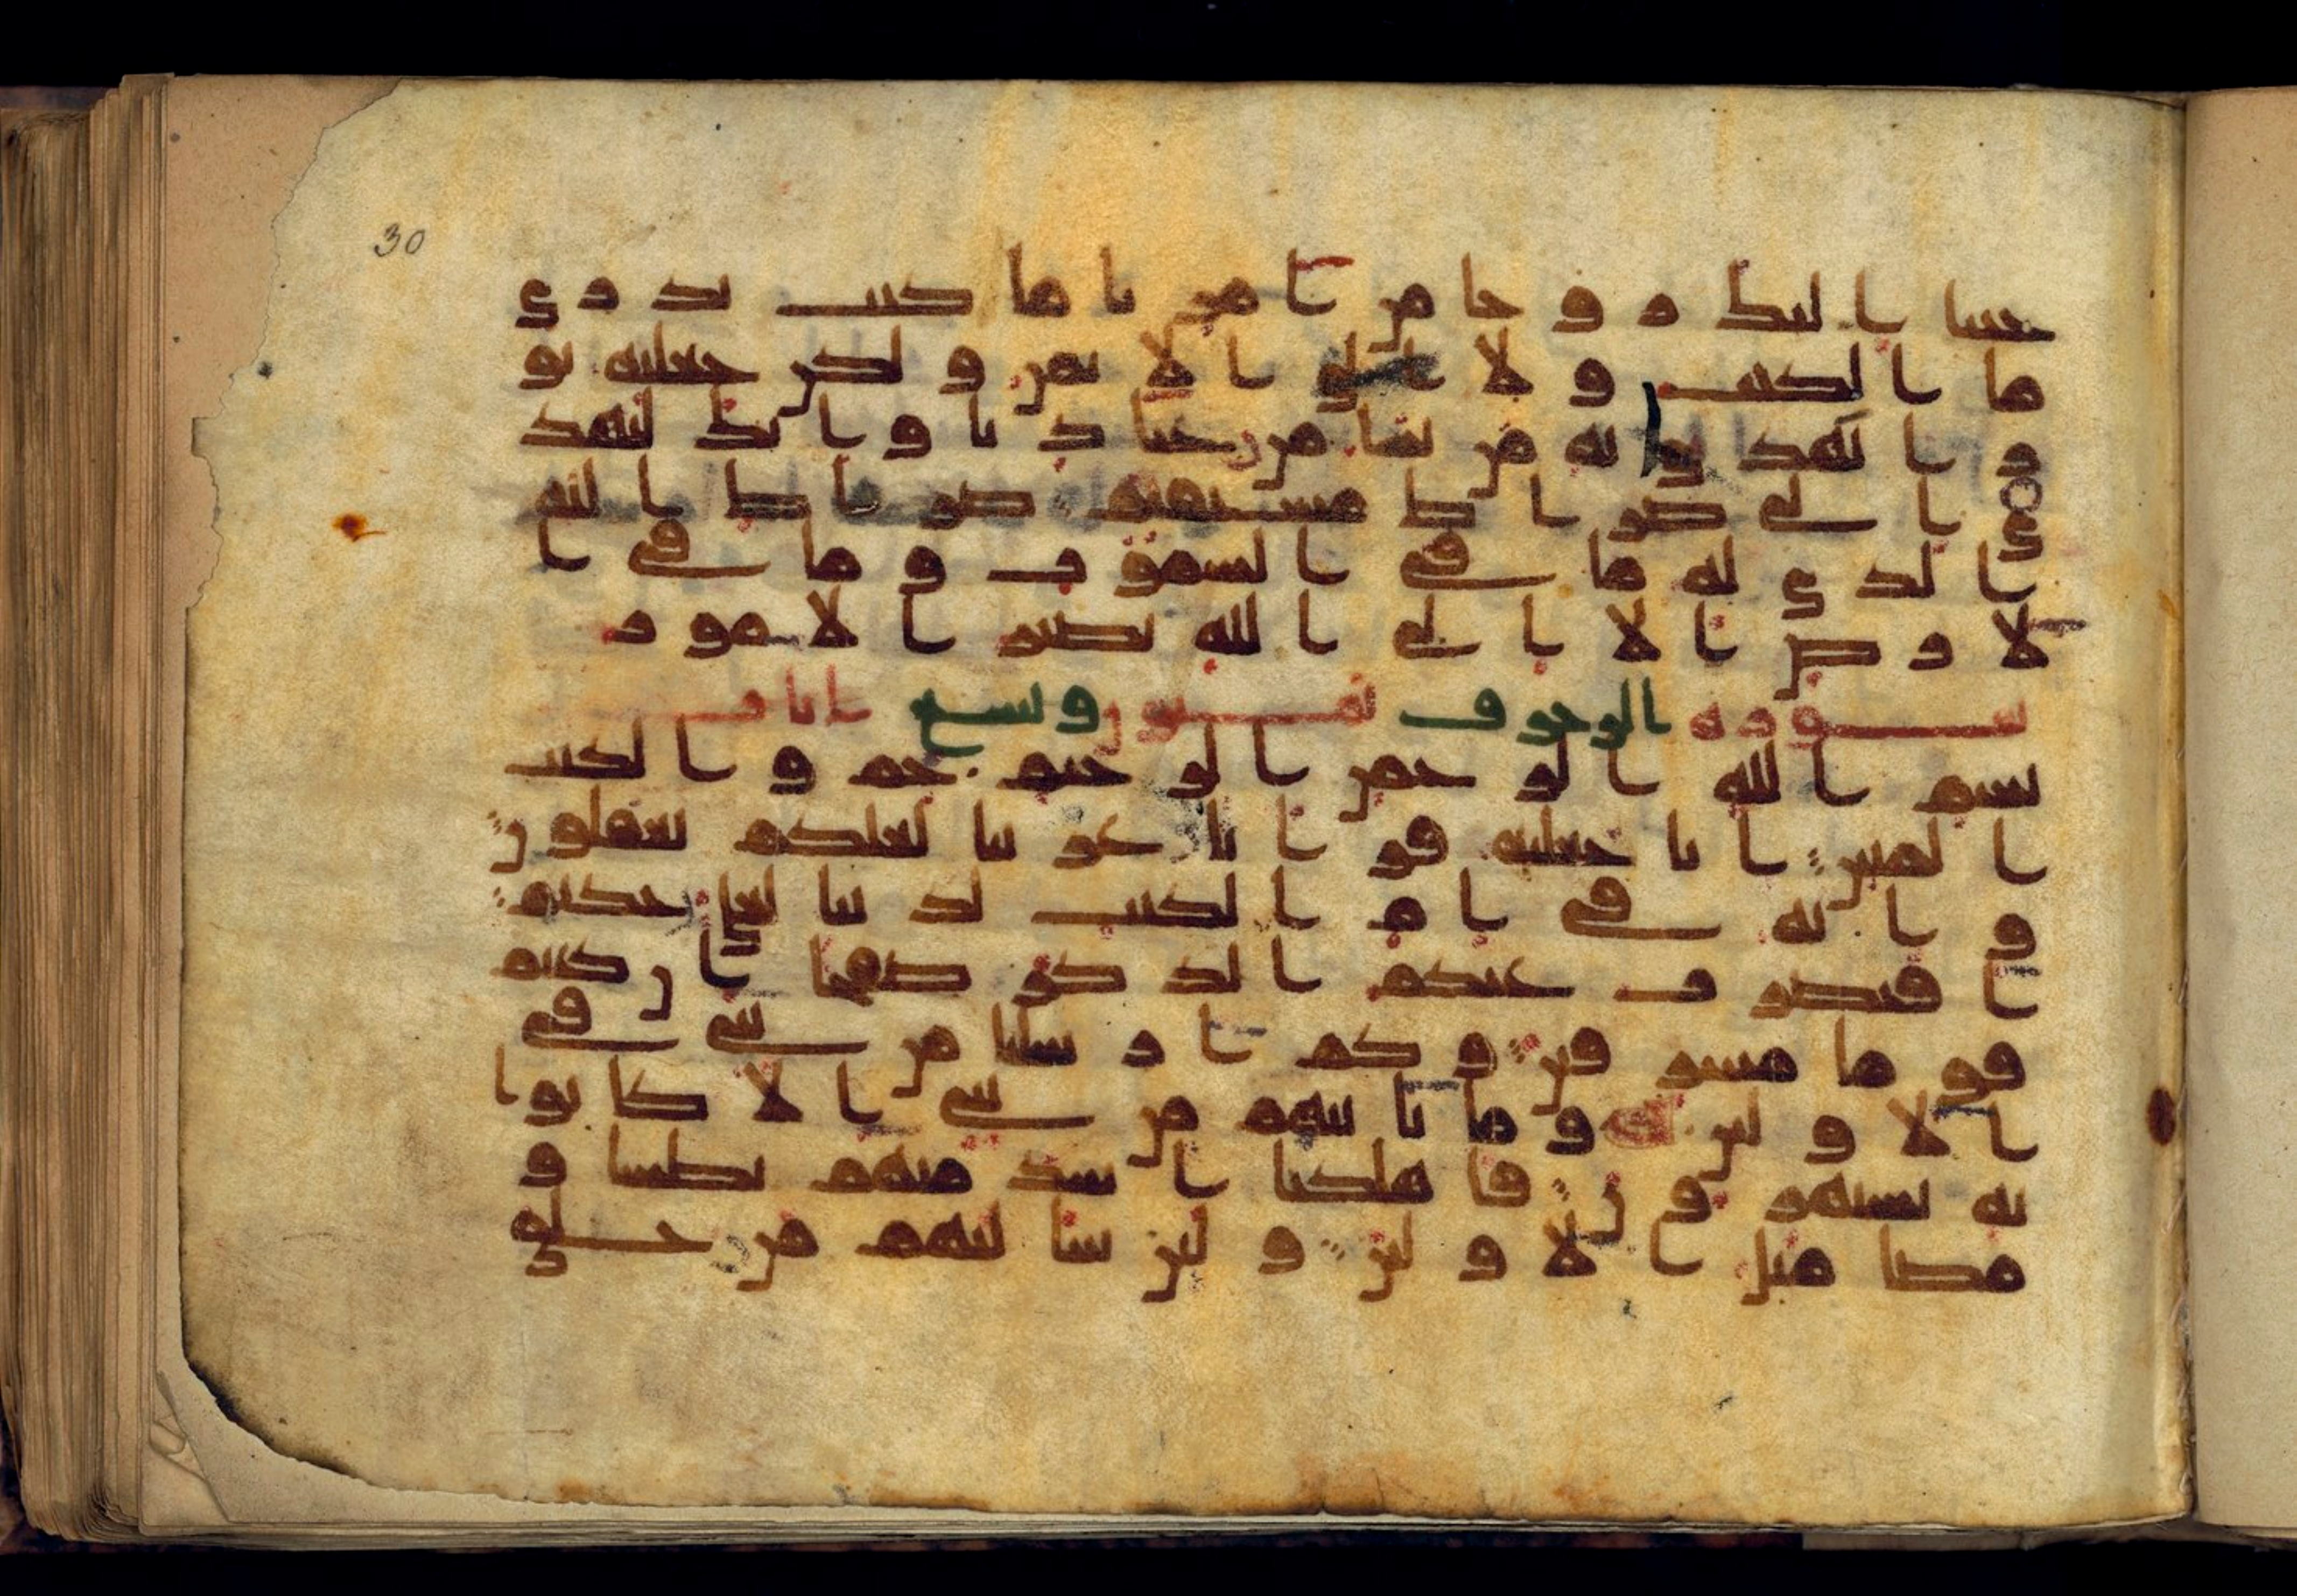 30
حينا اليك روحا من امرنا ما كنت تدري
ما الكتب ولا الايمن ولكن جعلنه نو
را نهدي به من نشا من عبادنا وانك لتهد
ي الى صراط مستقيم صراط الله
الذي له ما في السموت وما في ا
لارض الا الى الله تصير الامور
سورة الزخرف ثمنون وتسع ايات
بسم الله الرحمن الرحيم حم والكتب
المبين انا جعلنه قرانا عربيا لعلكم تعقلون
وانه في ام الكتب لدينا لعلي حكيم
افنضرب عنكم الذكر صفحا ان كنتم
قوما مسرفين وكم ارسلنا من نبي في
الاولين وما ياتيهم من نبي الا كانوا
به يستهزون فاهلكنا اشد منهم بطشا و
مضا مثل الاولين ولين سالتهم من خلق